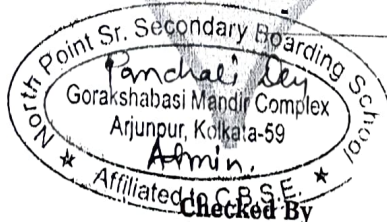 North Point Sr. Secondary Boarding School
Panchali Dey
Gorakshabasi Mandir Complex
Arjunpur, Kolkata-59
Admin.
★ Affiliated to C.B.S.E. ★
Checked By